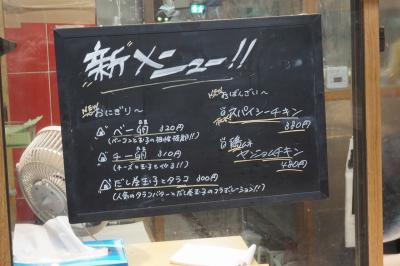 新メニュー!!
NEW おにぎり〜
ベー卵 320円
(ベーコンと玉子の相性抜群!!)
チー卵 310円
(チーズと玉子とやる!!)
だし屋玉子とタラコ 300円
(人気のタラコバターとだし屋玉子のコラボレーション!!)
NEW おばんざい〜
スパイシーチキン
380円
ヤンニョムチキン
480円